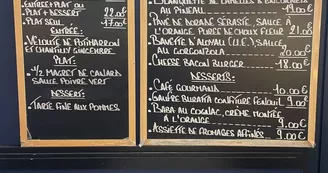 ENTRÉE + PLAT OU
PLAT + DESSERT 22.00
PLAT SEUL 17.00€
ENTRÉE:
VELOUTÉ DE POTIMARRON
ET CHANTILLY GINGEMBRE
PLAT:
1/2 MAGRET DE CANARD
SAUCE POIVRE VERT
DESSERT:
TARTE FINE AUX POMMES
BLANQUETTE DE
AU PINEAU 19.00€
PAVÉ DE DORADE SÉBASTE, SAUCE À
L'ORANGE PURÉE DE CHOUX FLEUR 21.00€
BAVETTE D'ALOYAU (U.E), SAUCE
AU GORGONZOLA 20.00€
CHEESE BACON BURGER 18.00€
DESSERTS:
CAFÉ GOURMAND 10.00€
GAUFRE BURATTA CONFITURE FENOUIL 9.00€
BABA AU COGNAC, CRÈME MONTÉE
À L'ORANGE 9.00€
ASSIETTE DE FROMAGES AFFINÉS 9.00€